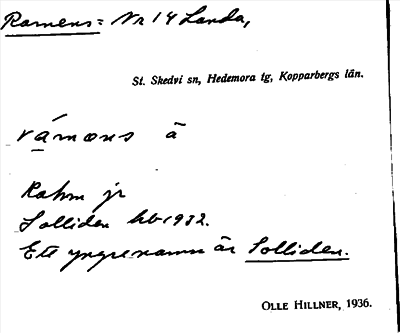 Ramens= Nr 14 Landa,
St. Skedvi sn, Hedemora tg, Kopparbergs län.
råmᴂns ä
Rahm jr
Solliden hb 1932.
Ett yngre namn är Solliden.
OLLE HILLNER, 1936.